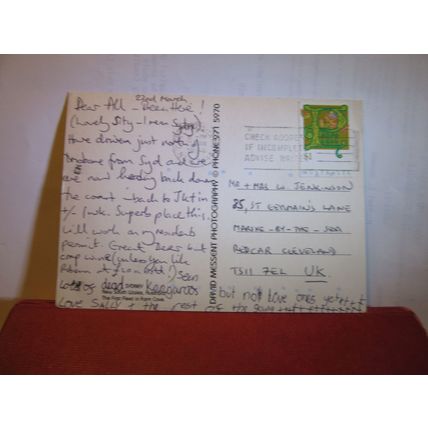 22nd March
Dear All - Been Here!
(Lovely City - I mean Sydney)
Have driven just north of
Brisbane from Syd and we
are now heading back down
the coast - back to in
+/- 1 wk. Superb place this.
Will work on my residents
permit. Great Beer but
wine (unless you like
!) Seen
Lots of dead Kangaroos
but not live ones yet
Love SALLY + the rest of the gang
SYDNEY
New South Wales, Australia
The First Fleet in Farm Cove
DAVID MESSENT PHOTOGRAPHY © PHONE 971 5970
CHECK ADDRESS
IF INCOMPLETE
ADVISE WRITER
AUSTRALIA
MR + MRS W. JENKINSON
25, ST GERMAIN'S LANE
MARSKE-BY-THE-SEA
REDCAR CLEVELAND
TS11 7EL UK